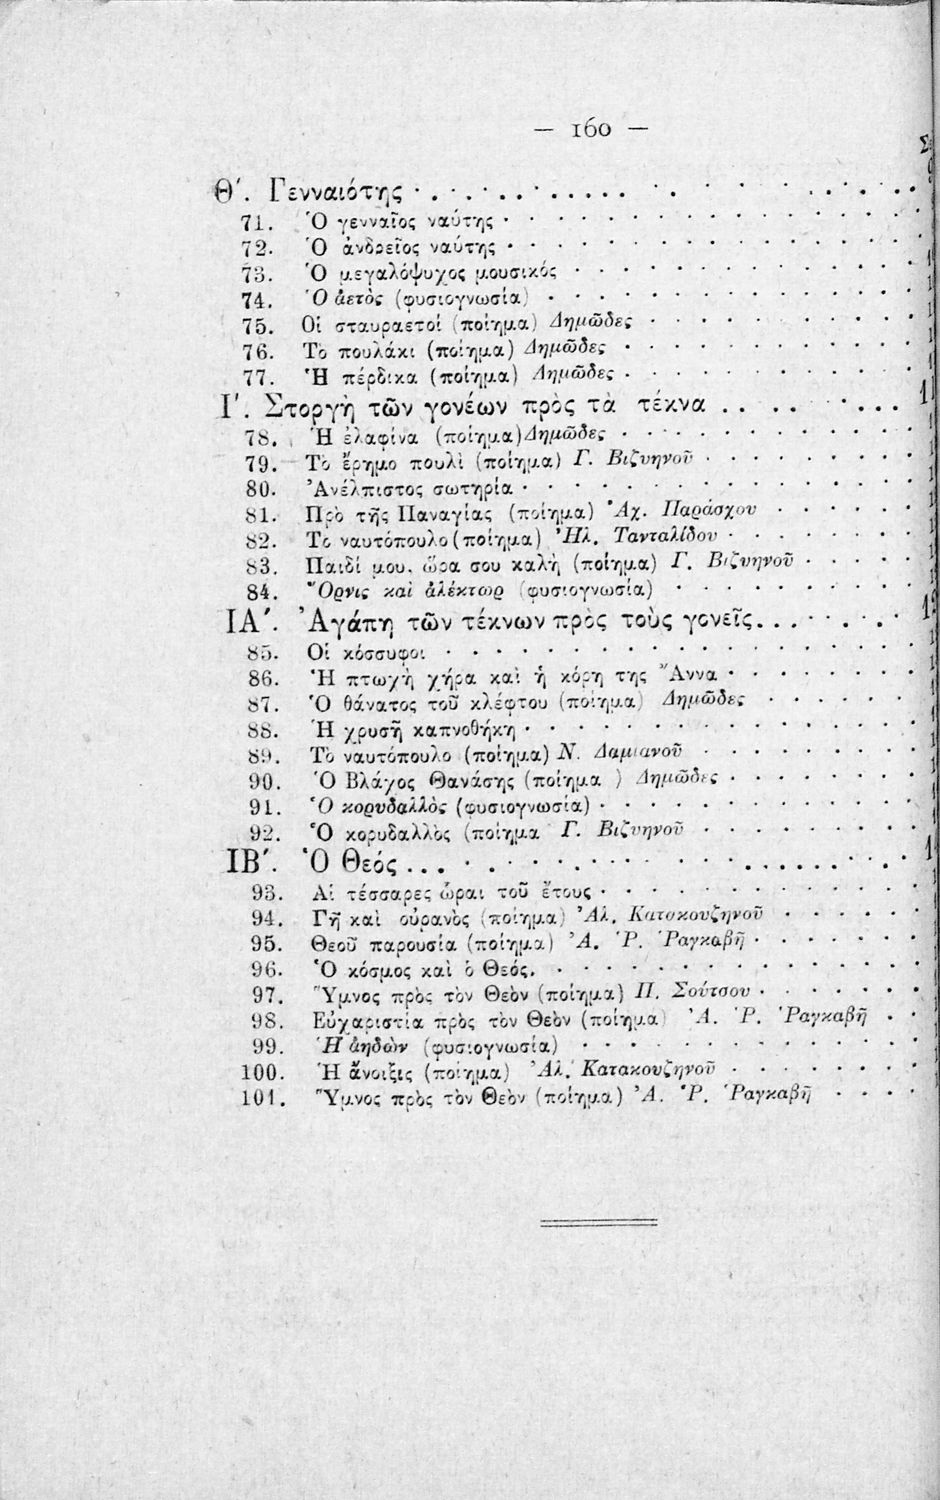 — 160 —
Θʹ. Γενναιότης
71. Ὁ γενναῖος ναύτης
72. Ὁ ἀνδρεῖος ναύτης
73. Ὁ μεγαλόψυχος μουσικός
74. Ὁ ἀετὸς (φυσιογνωσία)
75. Οἱ σταυραετοί (ποίημα) Δημῶδες
76. Τὸ πουλάκι (ποίημα) Δημῶδες
77. Ἡ πέρδικα (ποίημα) Δημῶδες
Ιʹ. Στοργὴ τῶν γονέων πρὸς τὰ τέκνα
78. Ἡ ἐλαφίνα (ποίημα) Δημῶδες
79. Τὸ ἔρημο πουλὶ (ποίημα) Γ. Βιζυηνοῦ
80. Ἀνέλπιστος σωτηρία
81. Πρὸ τῆς Παναγίας (ποίημα) Ἀχ. Παράσχου
82. Τὸ ναυτόπουλο (ποίημα) Ἠλ. Τανταλίδου
83. Παιδί μου, ὥρα σου καλὴ (ποίημα) Γ. Βιζυηνοῦ
84. Ὄρνις καὶ ἀλέκτωρ (φυσιογνωσία)
ΙΑʹ. Ἀγάπη τῶν τέκνων πρὸς τοὺς γονεῖς
85. Οἱ κόσσυφοι
86. Ἡ πτωχὴ χήρα καὶ ἡ κόρη της Ἄννα
87. Ὁ θάνατος τοῦ κλέφτου (ποίημα) Δημῶδες
88. Ἡ χρυσῆ καπνοθήκη
89. Τὸ ναυτόπουλο (ποίημα) Ν. Δαμιανοῦ
90. Ὁ Βλάχος Θανάσης (ποίημα) Δημῶδες
91. Ὁ κορυδαλλὸς (φυσιογνωσία)
92. Ὁ κορυδαλλὸς (ποίημα Γ. Βιζυηνοῦ
ΙΒʹ. Ὁ Θεός
93. Αἱ τέσσαρες ὧραι τοῦ ἔτους
94. Γῆ καὶ οὐρανὸς (ποίημα) Ἀλ. Κατακουζηνοῦ
95. Θεοῦ παρουσία (ποίημα) Ἀ. Ῥ. Ῥαγκαβῆ
96. Ὁ κόσμος καὶ ὁ Θεός.
97. Ὕμνος πρὸς τὸν Θεὸν (ποίημα) Π. Σούτσου
98. Εὐχαριστία πρὸς τὸν Θεὸν (ποίημα) Ἀ. Ῥ. Ῥαγκαβῆ
99. Ἡ ἀηδὼν (φυσιογνωσία)
100. Ἡ ἄνοιξις (ποίημα) Ἀλ. Κατακουζηνοῦ
101. Ὕμνος πρὸς τὸν Θεὸν (ποίημα) Ἀ. Ῥ. Ῥαγκαβῆ